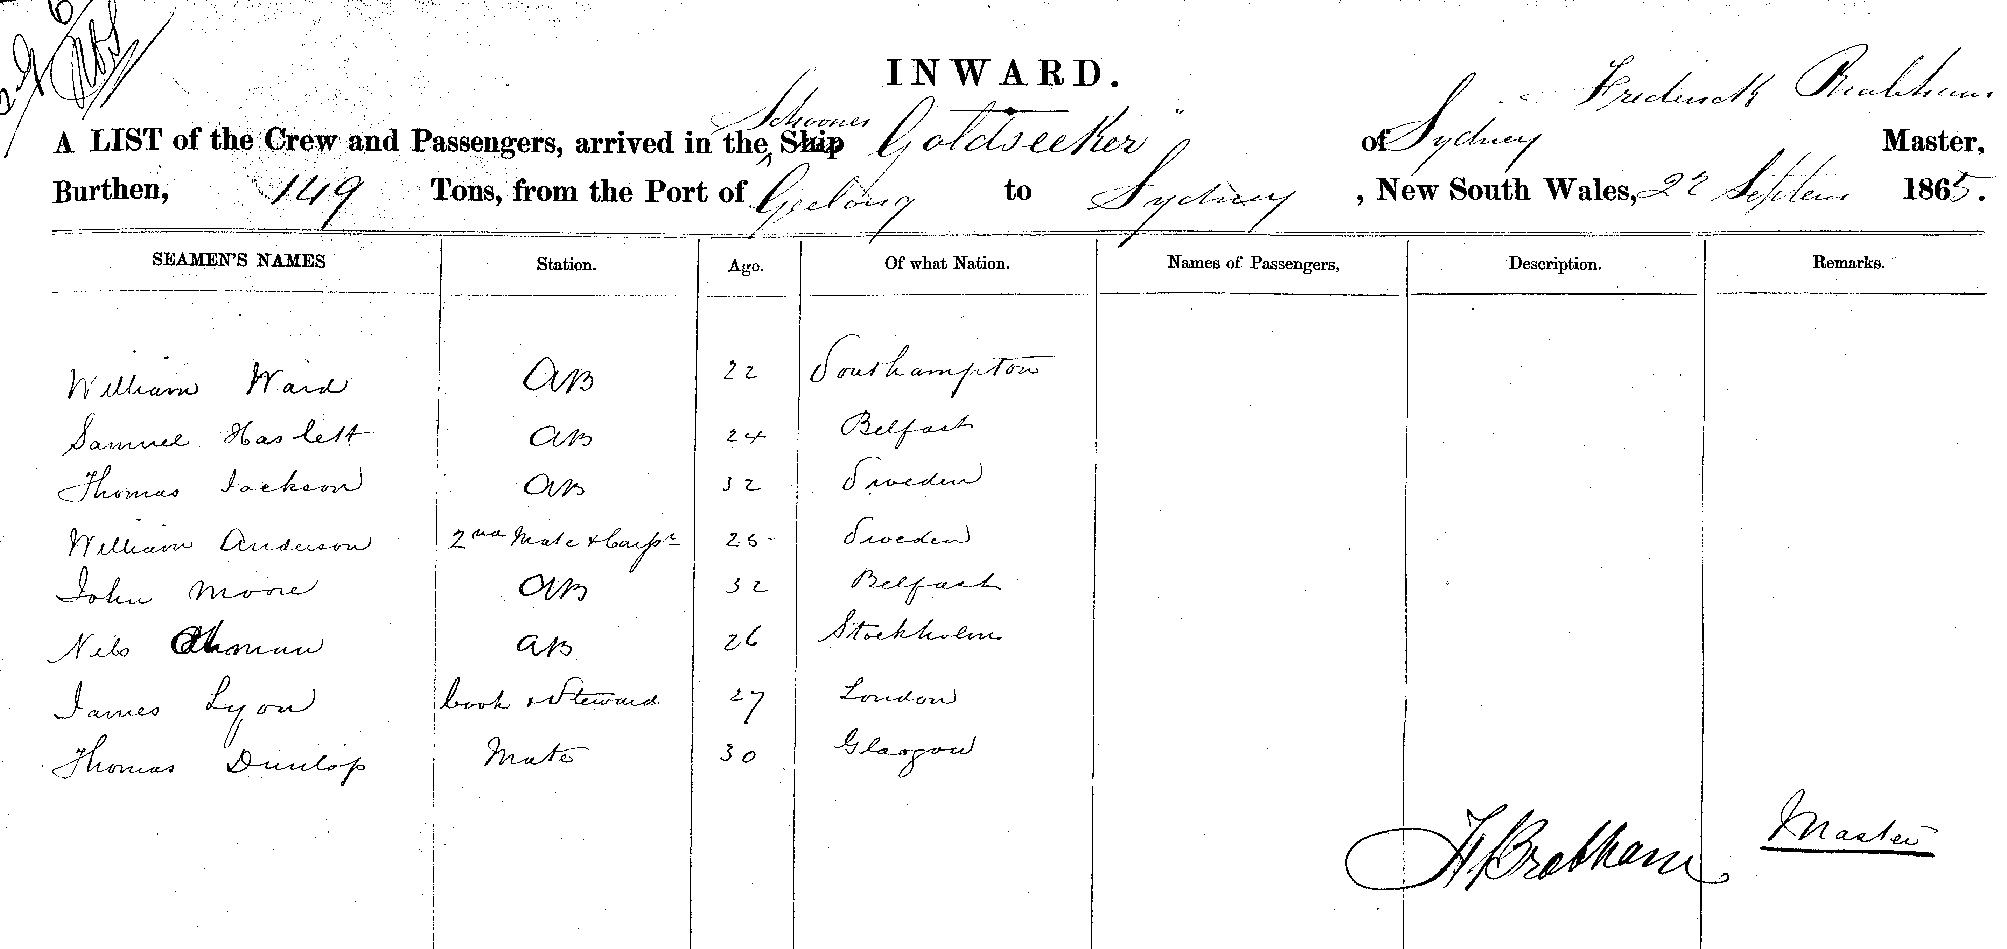 INWARD.
Frederick Brabham
A LIST of the Crew and Passengers, arrived in the Schooner Ship "Goldseeker" of Sydney Master,
Burthen, 149 Tons, from the Port of Geelong to Sydney, New South Wales, 22 Septem 1865.
SEAMEN'S NAMES Station. Age. Of what Nation. Names of Passengers, Description. Remarks.
William Ward AB 22 Southampton
Samuel Haslett AB 24 Belfast
Thomas Jackson AB 32 Sweden
William Anderson 2nd Mate & Carpr 25 Sweden
John Moore AB 32 Belfast
Nils Ohman AB 26 Stockholm
James Lyon Cook & Steward 27 London
Thomas Dunlop Mate 30 Glasgow
F Brabham Master